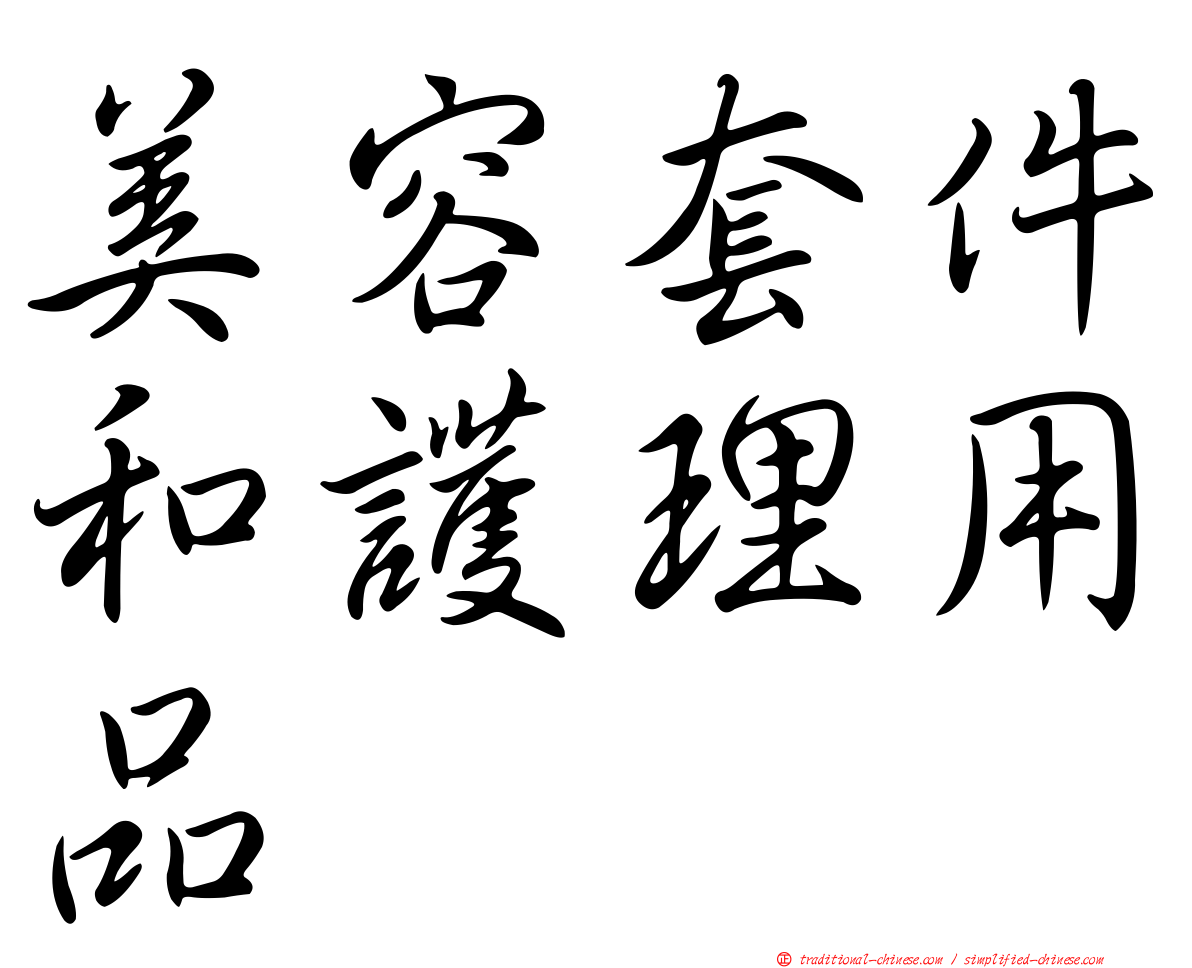 美容套件
和護理用
品
㊣ traditional-chinese.com / simplified-chinese.com